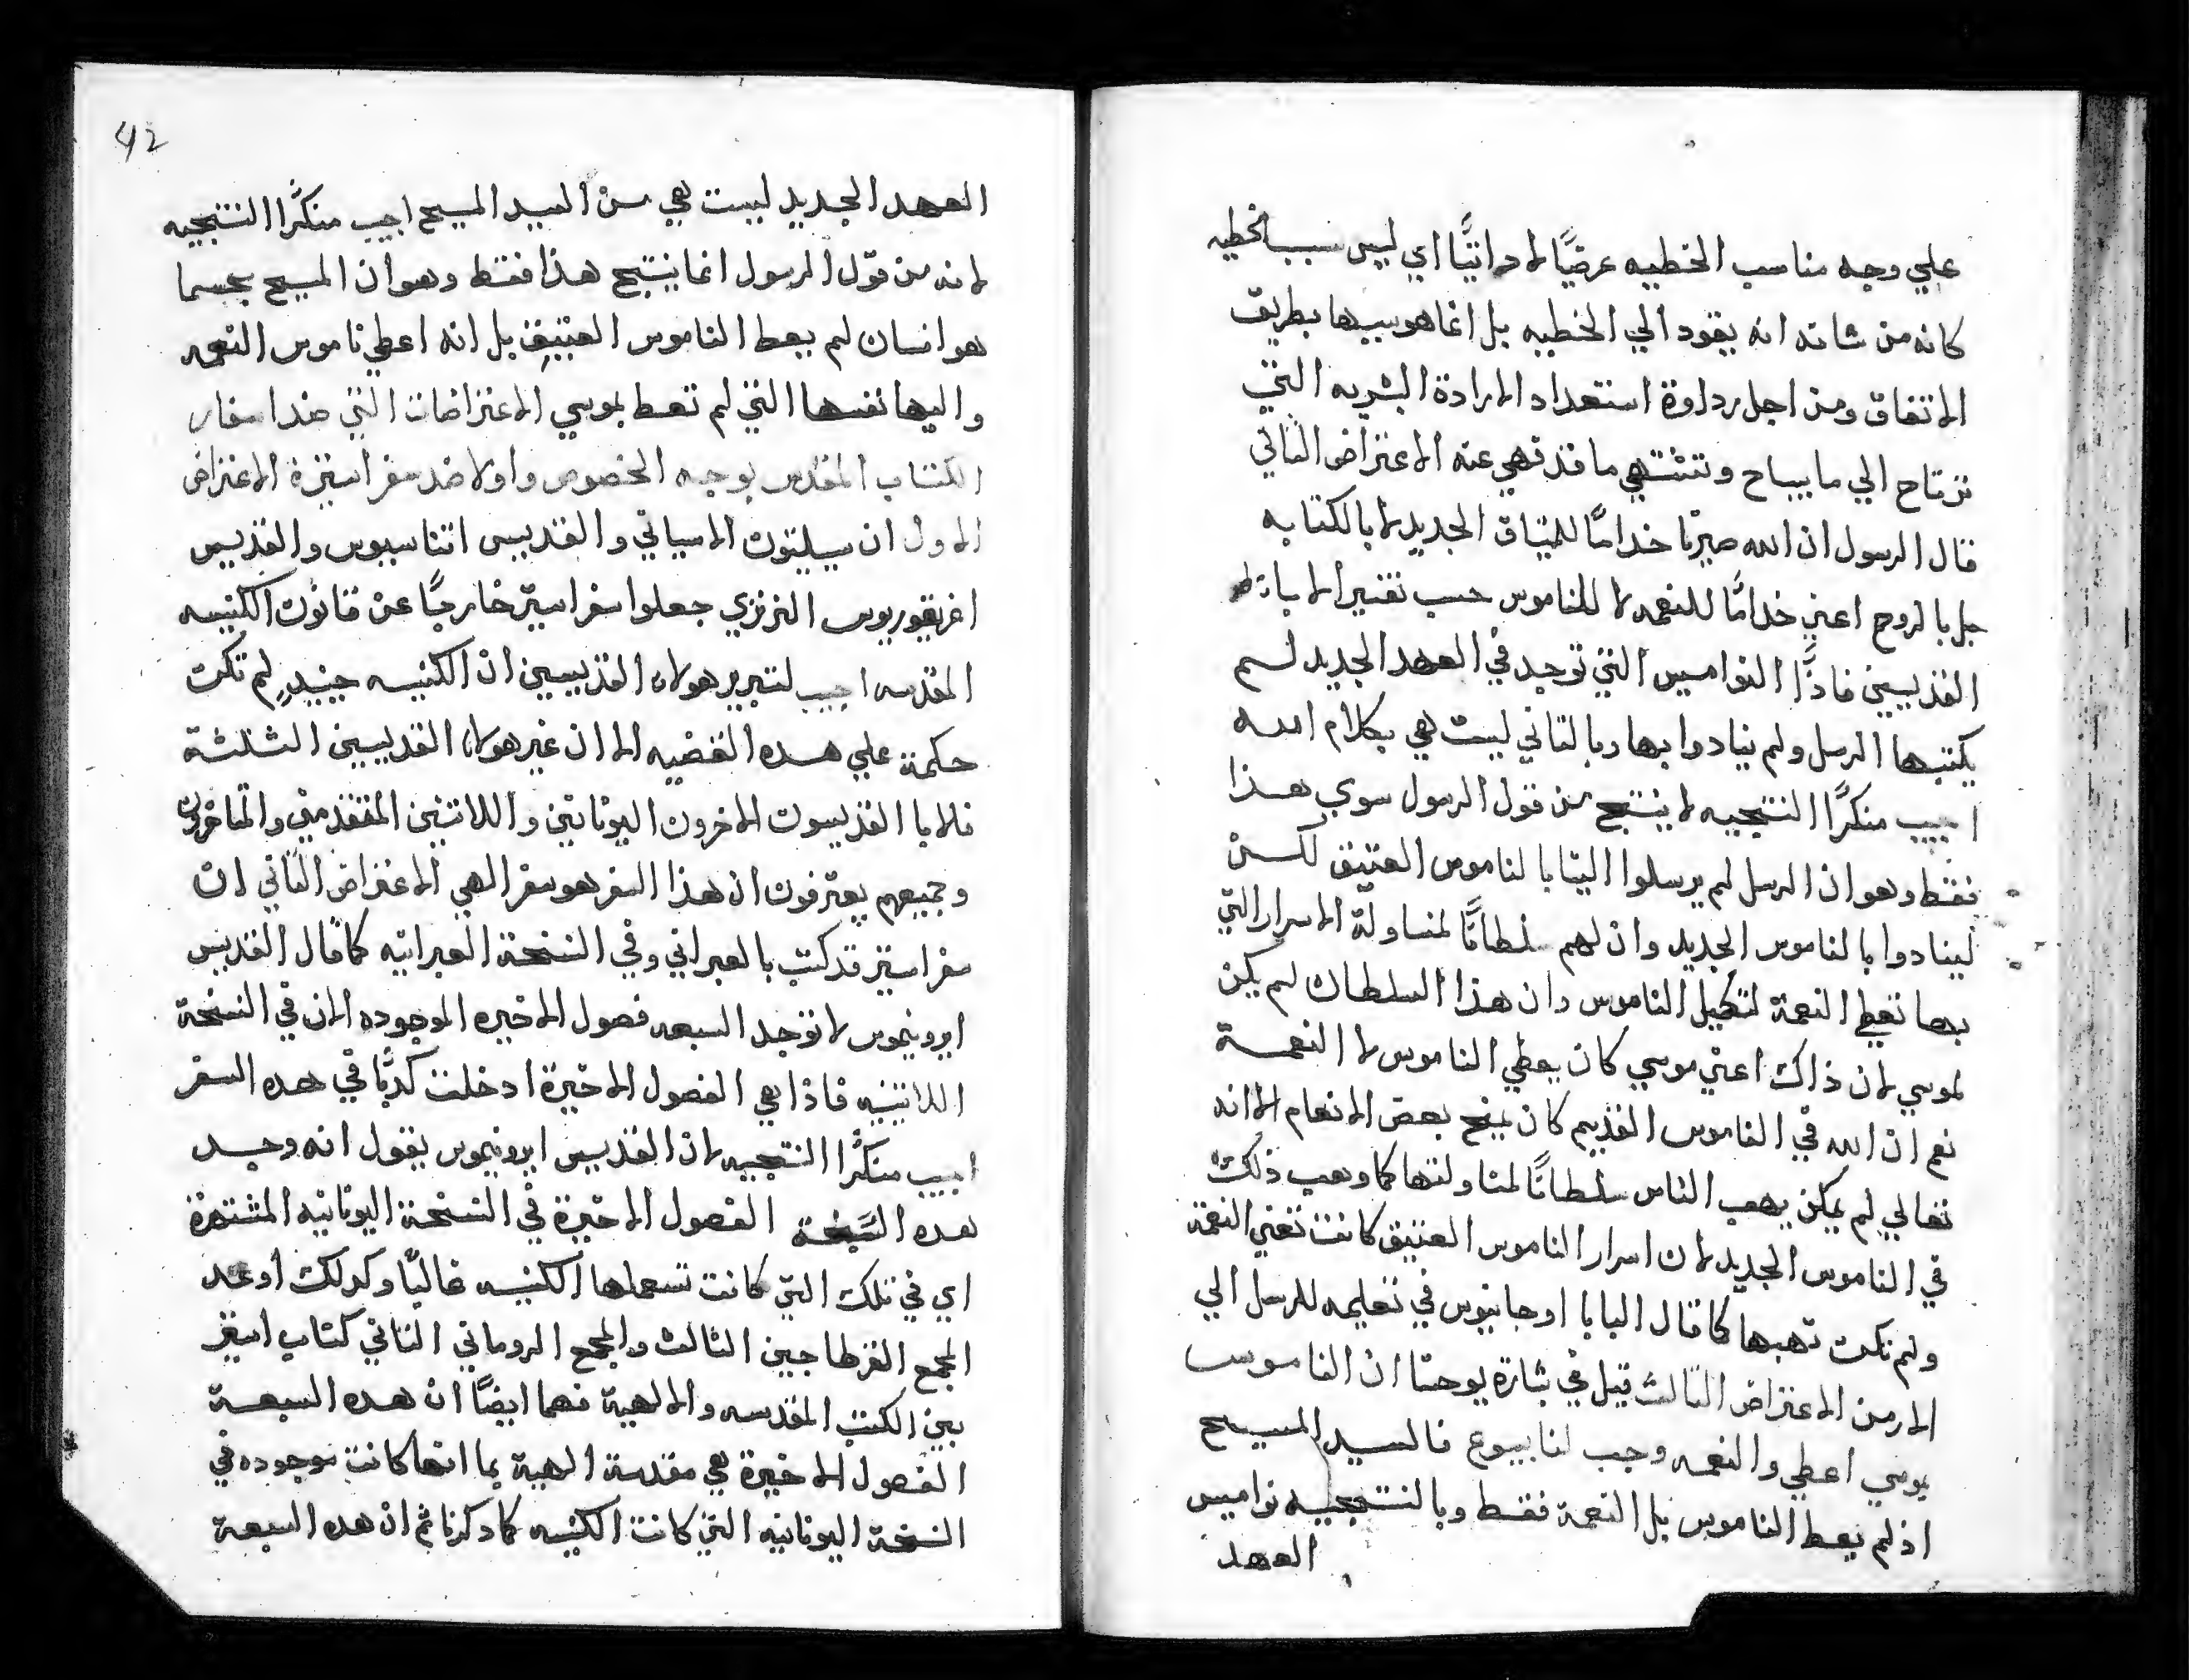 علي وجه مناسب الخطيه عرضيًا لا داتيًّا اي ليس سبب الخطيه
كانه من شانه انه يقود الي الخطيه بل انما هو سببها بطريق
الاتفاق ومن اجل رداوة استعداد الارادة البشريه التي
ترتاح الي ما يباح وتشتهي ما قد نهي عنه الاعتراض الثاني
قال الرسول ان الله صيرنا خدامًا للميثاق الجديد لا بالكتابه
بل بالروح اعني خدامًا للنعمه لا للناموس حسب تفسير الابا
القديسين فاذًا النواميس التي توجد في العهد الجديد لم
يكتبها الرسل ولم ينادوا بها وبالتاني ليست هي بكلام الله
اجيب منكرًا النتيجيه لا ينتج من قول الرسول سوي هذا
فقط وهو ان الرسل لم يرسلوا الينا بالناموس العتيق لكن
لينادوا بالناموس الجديد وان لهم سلطانًا لمناولة الاسرار التي
بها تعطي النعمة لتكميل الناموس وان هذا السلطان لم يكن
لموسي لان ذاك اعني موسي كان يعطي الناموس لا النعمة
نعم ان الله في الناموس القديم كان يمنح بعض الانعام الا انه
تعالي لم يكن يهب الناس سلطانًا لمناولتها كما وهب ذلك
في الناموس الجديد لان اسرار الناموس العتيق كانت تعني النعمة
ولم تكن تهبها كما قال البابا اوجانيوس في تعليمه للرسل الي
الارمن الاعتراض الثالث قيل في بشارة يوحنا ان الناموس
بموسي اعطي والنعمه وجب لنا بيسوع فالسيد المسيح
اذ لم يعط الناموس بل النعمة فقط وبالنتيجيه نواميس
العهد
42
العهد الجديد ليست هي من السيد المسيح اجيب منكرًا النتيجيه
لانه من قول الرسول انما ينتج هذا فقط وهو ان المسيح بحسبما
هو انسان لم يعط الناموس العتيق بل انه اعطي ناموس النعمه
واليها نفسها التي لم تعط بموسي الاعتراضات التي ضد اسفار
الكتاب المقدس بوجه الخصوص واولا ضد سفر استيرة الاعتراض
الاول ان سيليتون الاسياني والقديس اتناسيوس والقديس
اغريغوريوس النزنزي جعلوا سفر استير خارجًا عن قانون الكنيسه
المقدسه اجيب لتبرير هولاء القديسين ان الكنيسه حينيدٍ لم تكن
حكمة علي هده القضيه الا ان غير هولاء القديسين الثلثة
فالابا القديسون الاخرون اليونانين واللاتنين المتقدمين والمتاخرين
وجميعهم يعترفون ان هذا السفر هو سفر الهي الاعتراض الثاني ان
سفر استير قد كتب بالعبراني وفي النسخة العبرانيه كما قال القديس
ايرونيموس لا توجد السبعه فصول الاخيره الموجوده الان في النسخة
اللاتنيه فاذًا هي الفصول الاخيرة ادخلت كدبًا في هده السفر
اجيب منكرًا النتيجيه لان القديس ايرونيموس يقول انه وجد
هده السبعة الفصول الاخيرة في النسخة اليونانيه المشتهرة
اي في تلك التي كانت تسعملها الكنيسه غالبًا وكدلك اوعد
المجمع القرطاجيين الثالث والمجمع الروماني الثاني كتاب استير
بين الكتب المقدسه والالهية فهما ايضًا ان هده السبعة
الفصول الاخيرة هي مقدسة الهية بما انها كانت موجوده في
النسخة اليونانيه التي كانت الكنيسه كما دكرنا ثم ان هده السبعة